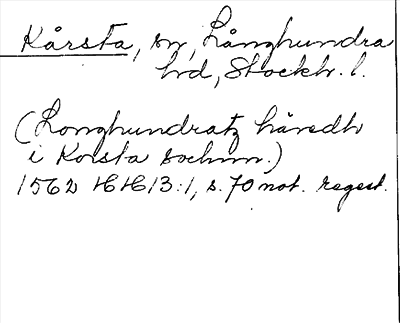 Kårsta, sn, Långhundra
hd, Stockh. l.
(Longhundratz häredh
i Korsta sochnn.)
1562 HH 13:1, s. 70 not. regest.